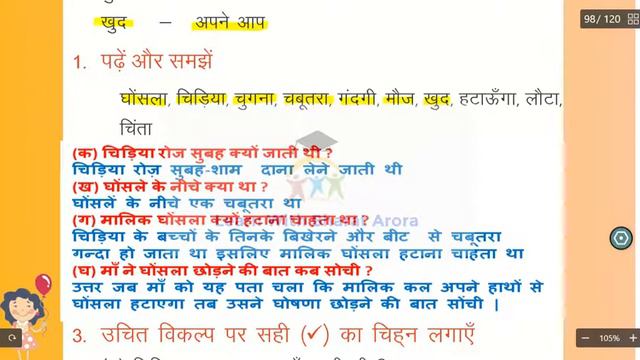 खुद – अपने आप
98 / 120
1. पढ़ें और समझें
घोंसला, चिड़िया, चुगना, चबूतरा, गंदगी, मौज, खुद, हटाऊँगा, लौटा,
चिंता
(क) चिड़िया रोज सुबह क्यों जाती थी ?
चिड़िया रोज़ सुबह-शाम दाना लेने जाती थी
(ख) घोंसले के नीचे क्या था ?
घोंसलें के नीचे एक चबूतरा था
(ग) मालिक घोंसला क्यों हटाना चाहता था ?
Arora
चिड़िया के बच्चों के तिनके बिखेरने और बीट से चबूतरा
गन्दा हो जाता था इसलिए मालिक घोंसला हटाना चाहता था
(घ) माँ ने घोंसला छोड़ने की बात कब सोची ?
उत्तर जब माँ को यह पता चला कि मालिक कल अपने हाथों से
घोंसला हटाएगा तब उसने घोषणा छोड़ने की बात सोंची |
3. उचित विकल्प पर सही (✓) का चिह्न लगाएँ
105%